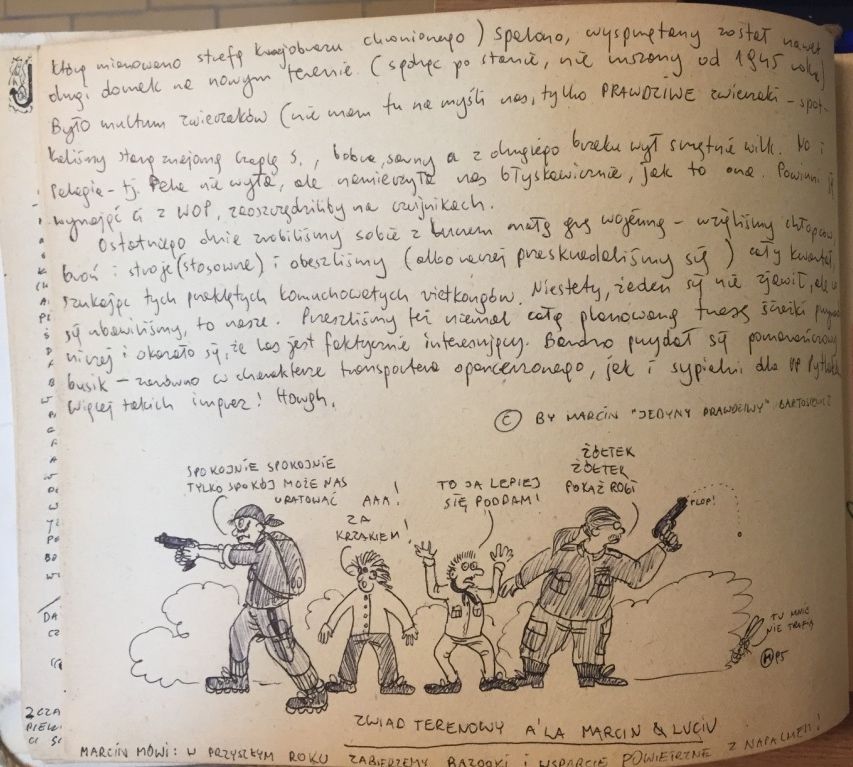 którą mianowano strefą krajobrazu chronionego) spalono, wysprzątany został nawet
drugi domek na nowym terenie. (sądząc po stanie, nie ruszany od 1945 roku)
Było multum zwierzaków (nie mam tu na myśli nas, tylko PRAWDZIWE zwierzaki - spot-
kaliśmy starą znajomą czaplę S., bobra, sarny a z drugiego brzeku wył smętnie wilk. No i
Pelagia - tj. Pela nie wyła, ale namierzyła nas błyskawicznie, jak to ona. Powinni ją
wynająć ci z WOP, zaoszczędziliby na czujnikach.
Ostatniego dnia zrobiliśmy sobie z Lucem małą grę wojenną - wzięliśmy chłopców,
broń i stroje (stosowne) i obeszliśmy (albo raczej przeskradaliśmy się) cały kwartał,
szukając tych przeklętych komuchowatych vietkongów. Niestety, żaden się nie zjawił, ale co
się ubawiliśmy, to nasze. Przeszliśmy też niemal całą planowaną trasę ścieżki
niczej i okazało się, że las jest faktycznie interesujący. Bardzo przydał się pomarańczowy
busik - zarówno w charakterze transportera opancerzonego, jak i sypialni dla
Więcej takich imprez! Howgh.
© BY MARCIN "JEDYNY PRAWDZIWY" BARTOSIEWICZ
SPOKOJNIE SPOKOJNIE
TYLKO SPOKÓJ MOŻE NAS
URATOWAĆ
AAA!
ZA
KRZAKIEM!
TO JA LEPIEJ
SIĘ PODDAM!
ŻÓŁTEK
ŻÓŁTEK
POKAŻ ROGI
PLOP!
TU MNIE
NIE TRAFIĄ
95
ZWIAD TERENOWY A'LA MARCIN & LUCIU
MARCIN MÓWI: W PRZYSZŁYM ROKU ZABIERZEMY BAZOOKI I WSPARCIE POWIETRZNE Z NAPALMEM!